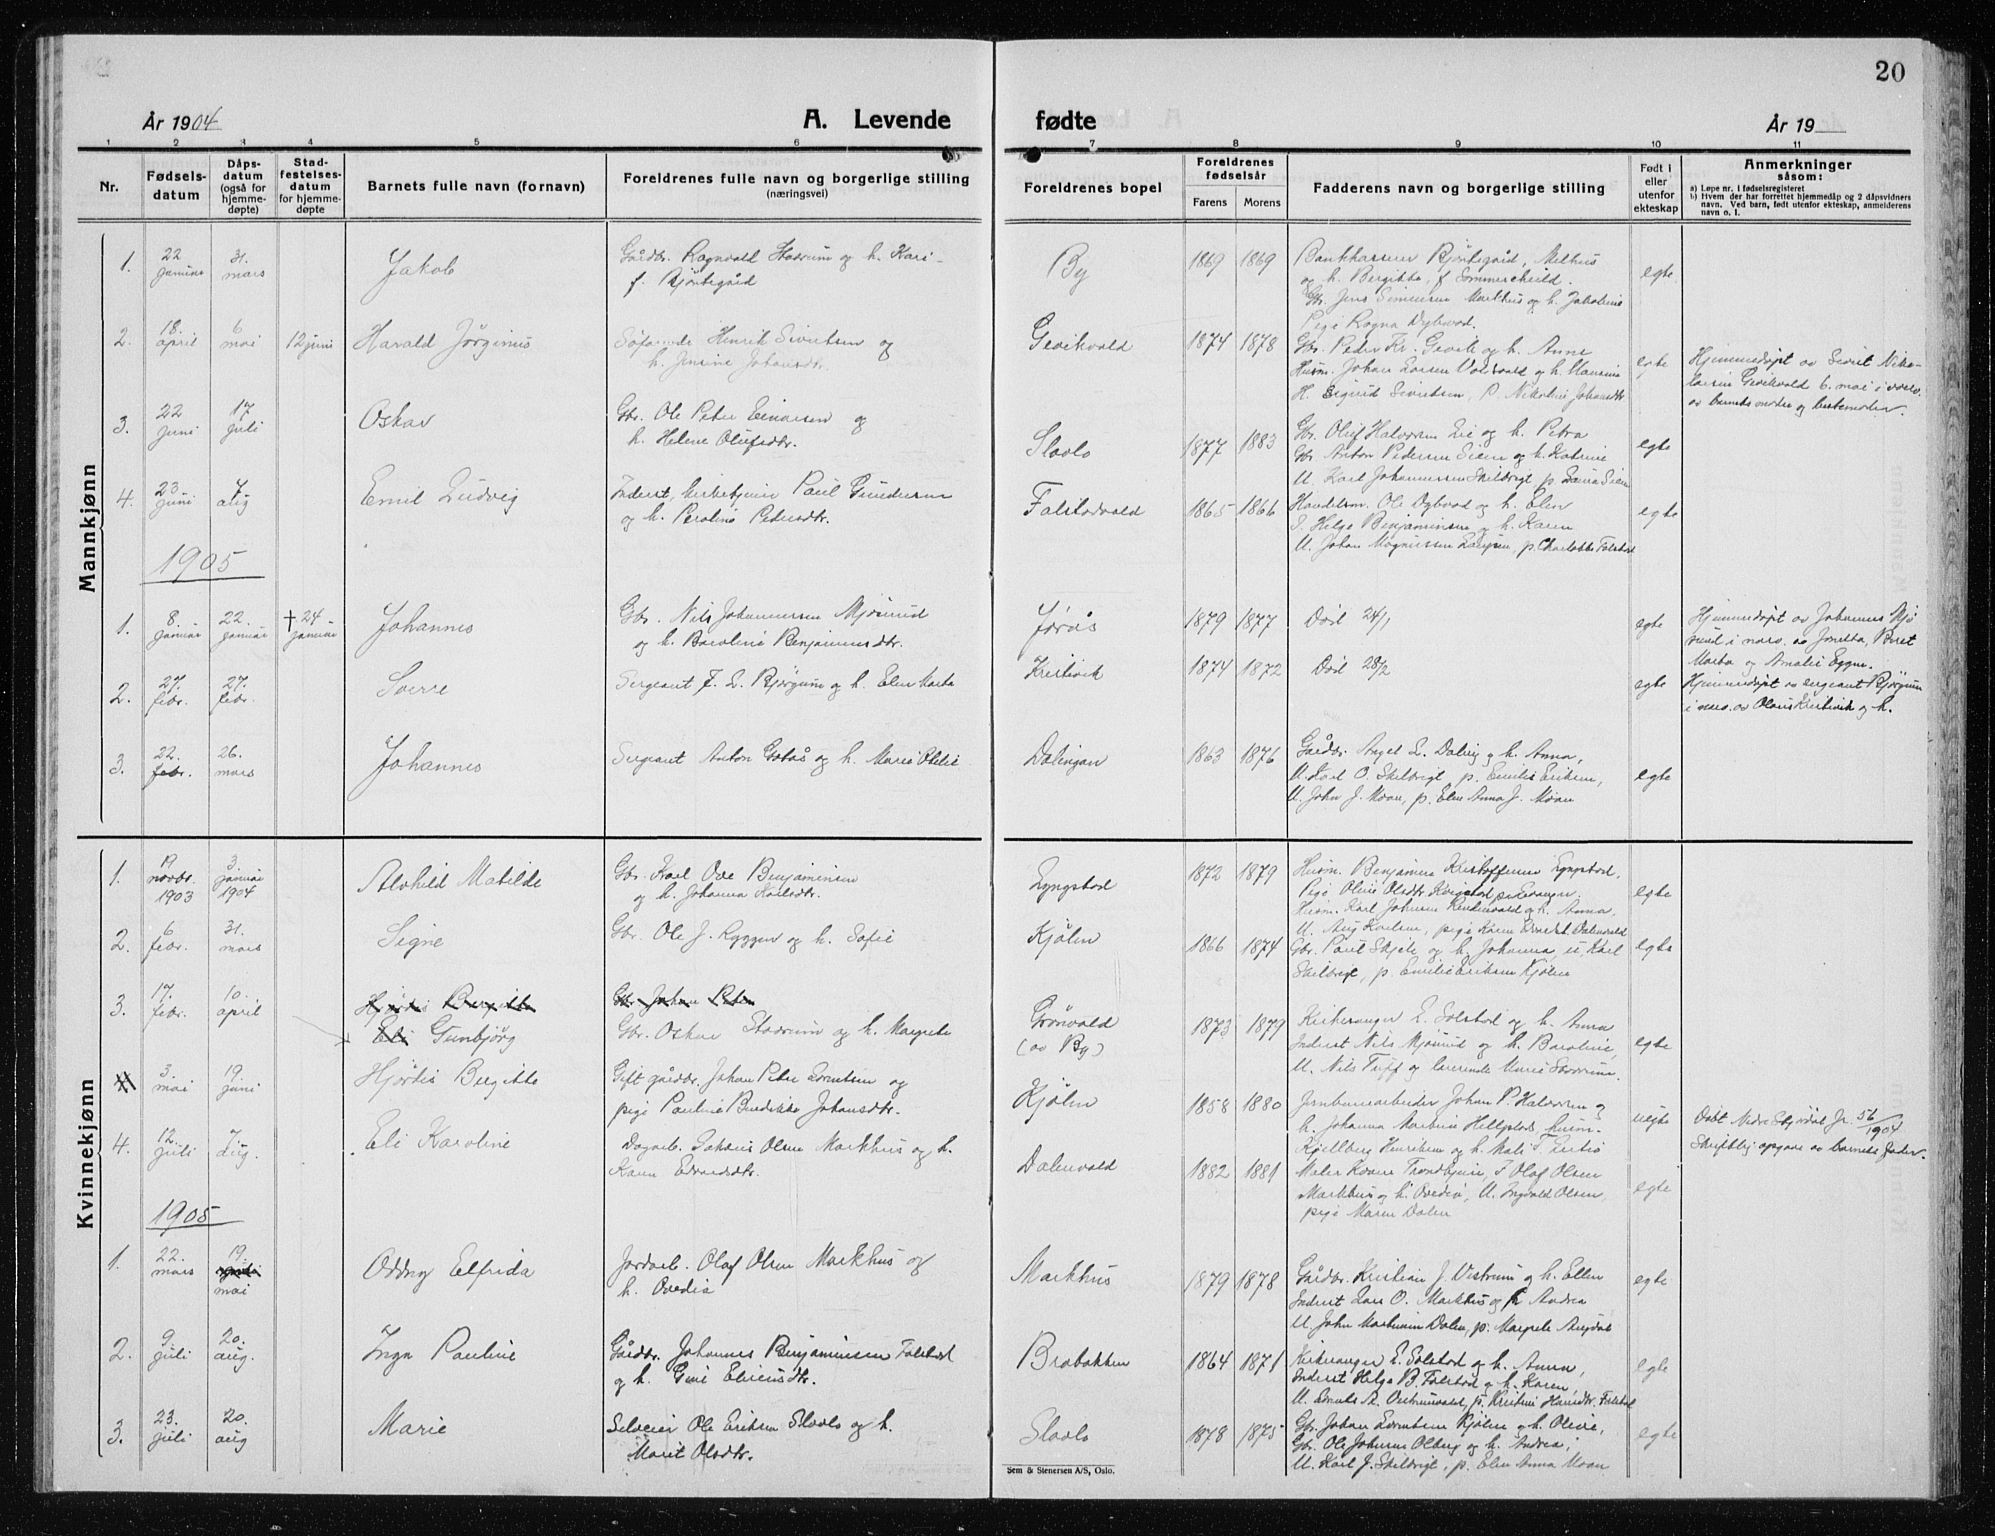 20
År 1904
A. Levende fødte
År 19
1 2 3 4 5 6 7 8 9 10 11
Nr.
Fødsels-
datum
Dåps-
datum
(også for
hjemme-
døpte)
Stad-
festelses-
datum
for hjemme-
døpte
Barnets fulle navn (fornavn)
Foreldrenes fulle navn og borgerlige stilling
(næringsvei)
Foreldrenes bopel
Foreldrenes
fødselsår
Farens Morens
Fadderens navn og borgerlige stilling
Født i
eller
utenfor
ekteskap
Anmerkninger
såsom:
a) Løpe nr. i fødselsregisteret
b) Hvem der har forrettet hjemmedåp og 2 dåpsvidners
navn. Ved barn, født utenfor ekteskap, anmelderens
navn o. l.
Mannkjønn
1. 22 januar 31. mars Jakob
Gårdbr. Ragnvald Stavrum og h. Kari
f. Bjørtegård
By 1869 1869
Bjørtegård, Melhus
og h. Bergitta, f. Sommerschield.
Gbr. Jens Simensen Markhus og h. Jakobine
Pige Ragna Dybvad.
egte
2. 18. april 6 mai 12 juni Harald Jørginus
Henrik Sivertsen og
h. Jensine Johansdtr.
Gevikvald 1874 1878
Gbr. Peder Kr. Gevik og h. Anne
Husm. Johan Larsen og h. Hansine
H. Sigurd Sivertsen, P. Nikoline Johansdtr.
egte
Hjemmedøpt av Sivert Niko-
laisen Gevikvald 6. mai i nærv.
av barnets moder og bestemoder.
3. 22 juni 17 juli Oskar
Gbr. Ole Peter Einarsen og
h. Helene Olufsdtr.
Slovlo 1877 1883
Gbr. Oluf Halvorsen Lie og h. Petra
Gbr. Anton Pedersen Siem og h. Katrine
U. Karl Johannessen Skildvigt p. Laura Siem
egte
4. 23 juni 7 aug Emil Ludvig
Inderst, kirketjener Paul Gundersen
og h. Peroline Petersdtr.
Falstadvald 1865 1866
Handelsm. Ole Dybvad og h. Elen
I. Helge Benjaminsen og h. Karen
U. Johan Magnussen Langsen, p. Charlotte Falstad
egte
1905
1. 8. januar 22. januar † 24 januar Johannes
Gbr. Nils Johannessen Mjøsund
og h. Baroline Benjaminsdtr.
Jørås 1879 1877 Død 24/1
egte
Hjemmedøpt av Johannes Mjø
sund i nærv. av Jonetta, Beret
Marta og Amalie Eggen.
2. 27. febr. 27. febr. Sverre
Sergeant F. L. Bjørgum og h. Elen Marta
Kristivik 1874 1872 Død 28/2
egte
Hjemmedøpt av sergeant Bjørgum
i nærv. av Olaus Kristivik og h.
3. 22. febr. 26. mars Johannes
Sergeant Anton Gotås og h. Marie Otelie
Dalingan 1863 1876
Gårdbr. Angel L. Daling og h. Anna,
U. Karl O. Skildvigt, p. Emilie Eriksen,
U. John J. Moan, p. Elen Anna J. Moan
egte
Kvinnekjønn
1. 19 novbr. 1903 3. januar 1904 Alvhild Matilde
Gbr. Karl Ove Benjaminsen
og h. Johanna Karlsdtr.
Lyngstad 1872 1879
Husm. Benjamin Kristoffersen Lyngstad,
Pige Oline Olsdtr.
Husm. Karl Johnsen og h. Anna,
egte
2. 6 febr. 31. mars Signe
Gbr. Ole J. Ryggen og h. Sofie
Kjølen 1866 1874
U. Aug Karlsen, pige Karen Dalenvald
Gbr. Paul Skjele og h. Johanna, U. Karl
Skildvigt, p. Emilie Eriksen Kjølen
egte
3. 17. febr. 10. april Hjørdis Bergitta
Eli Gunbjørg
Gbr. Johan Peter
Gbr. Oskar Stavrum og h. Margrete
Grønvald
(av By)
1873 1879
Kirkesanger E. Solstad og h. Anna
Inderst Nils Mjøsund og h. Baroline,
U. Nils Tuff og lærerinde Marie Stavrum.
egte
4 3. mai 19 juni Hjørdis Bergitta
Gift gårdbr. Johan Peter Lorntsen og
pige Pauline Benedikte Johansdtr.
Kjølen 1858 1880
Jernbanearbeider Johan P. Halvorsen og
h. Johanna Martine Hellestad, husm.
Kjellberg Henriksen og h. Mali T.
uegte
Døbt Nedre Stjørdal Jr. 56/1904
Skriftlig opgave av barnets fader.
4. 12. juli 7 aug. Eli Karoline
Dagarb. Olsen Markhus og h.
Karen Edvardsdtr.
Dalenvald 1882 1881
Maler Trondhjem, I Olaf Olsen
Markhus og h. Ovedia, U. Ingvald Olsen,
pige Maren Dalen
egte
1905
1. 22. mars 19. april mai Oddny Elfrida
Jordarb. Olaf Olsen Markhus og
h. Ovedia
Markhus 1879 1878
Gårdbr. Kristian J. Vistrum og h. Ellen
Inderst Lars O. Markhus og h Andrea
U. John Martinsen Dalen, p. Margrete
egte
2. 9 juli 20. aug. Inga Pauline
Gårdbr. Johannes Benjaminsen Falstad
og h. Gine Eliasdtr.
Brabakken 1864 1871
Kirkesanger E. Solstad og h. Anna,
Inderst Helge B. Falstad og h. Karen,
p. Kristine Hansdtr. Falstad
egte
3. 23. juli 20. aug Marie
Selveier Ole Eriksen Slovlo og h.
Marit Olsdtr.
Slovlo 1878 1875
Gbr. Johan Lorntsen Kjølen og h. Olivie,
Gbr. Ole Johnsen Olberg og h. Andrea,
U. Karl J. Skildvigt, p. Elen Anna Moan
egte
Sem & Stenersen A/S, Oslo.